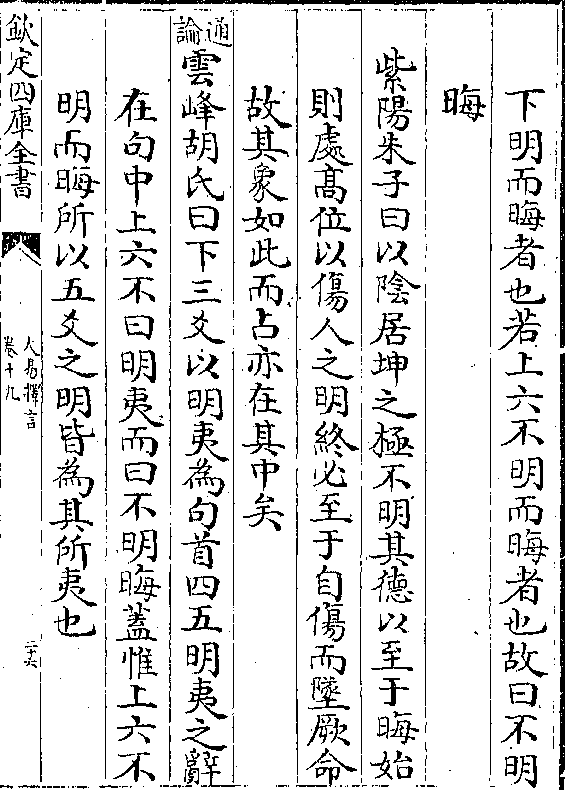 下明而晦者也若上六不明而晦者也故曰不明
晦
紫陽朱子曰以陰居坤之極不明其德以至于晦始
則處髙位以傷人之明終必至于自傷而墜厥命
故其象如此而占亦在其中矣
通論
雲峰胡氏曰下三爻以明夷為句首四五明夷之辭
在句中上六不曰明夷而曰不明晦蓋惟上六不
明而晦所以五爻之明皆為其所夷也
欽定四庫全書
大易擇言
卷十九
二十六